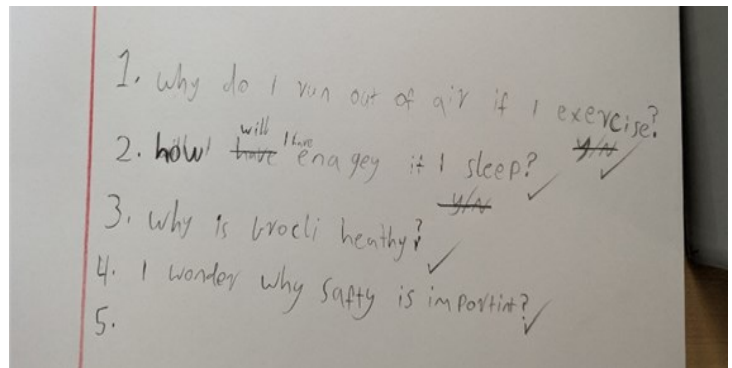 1. Why do I run out of air if I exercise?
Y/N
2. how will have I have enagey if I sleep?
Y/N
3. Why is brocli heathy?
4. I wonder why safty is importint?
5.